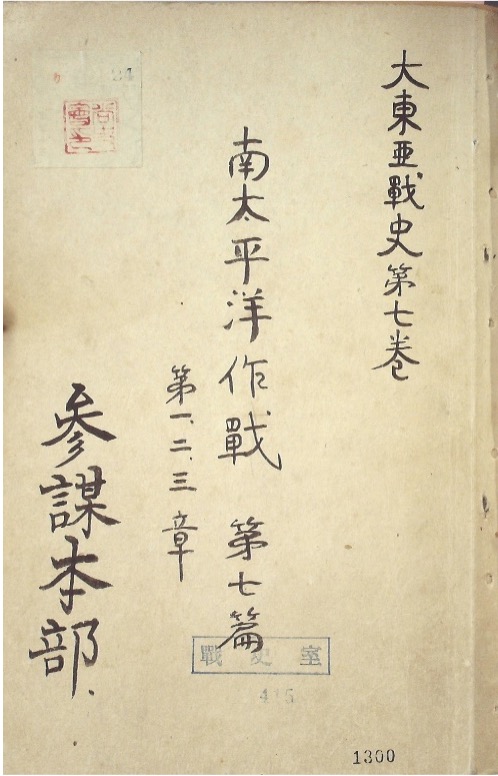 大東亜戰史第七巻
南太平洋作戰 第七篇
第一、二、三章
参謀本部、
戰史室
1300